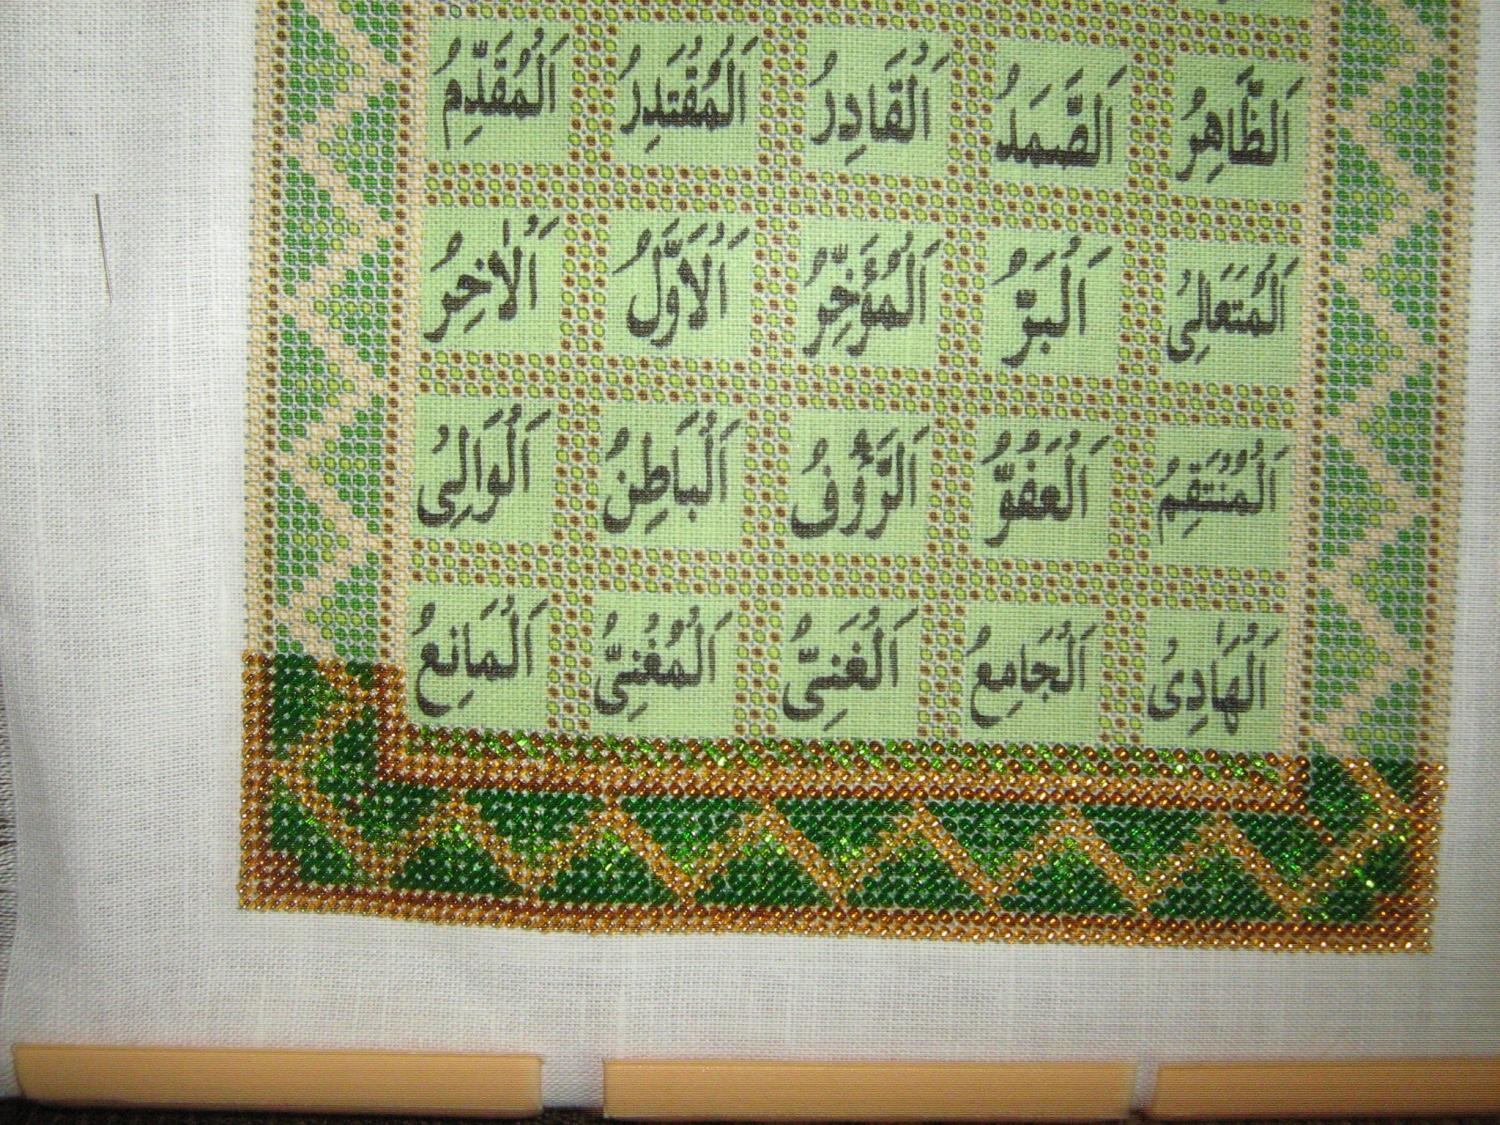 اَلظَّاهِرُ اَلصَّمَدُ اَلْقَادِرُ اَلْمُقْتَدِرُ اَلْمُقَدِّمُ
اَلْمُتَعَالِى اَلْبَرُّ اَلْمُؤَخِّرُ اَلْاَوَّلُ اَلْاٰخِرُ
اَلْمُنْتَقِمُ اَلْعَفُوُّ اَلرَّؤُفُ اَلْبَاطِنُ اَلْوَالِىُ
اَلْهَادِىُ اَلْجَامِعُ اَلْغَنِىُّ اَلْمُغْنِىُّ اَلْمَانِعُ